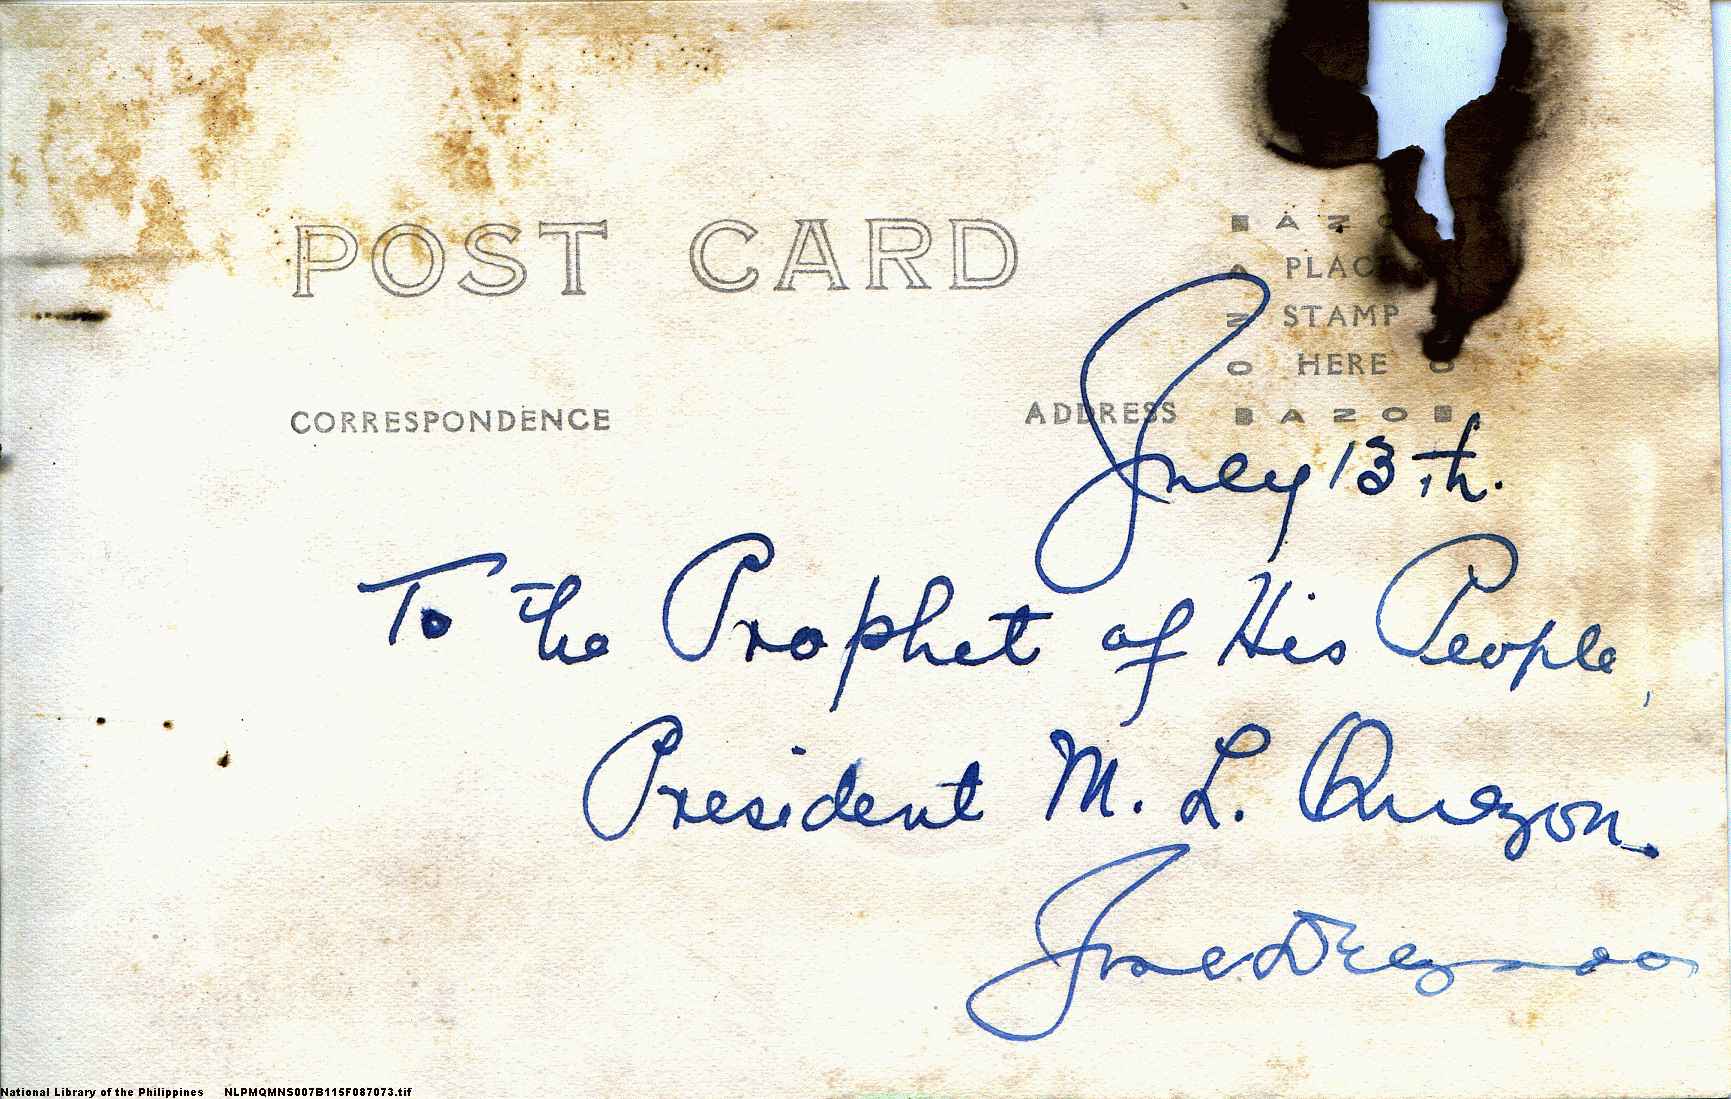 POST CARD
AZO
PLACE
STAMP
HERE
CORRESPONDENCE
ADDRESS
AZO
July 13th.
To the Prophet of His People,
President M. L. Quezon.
National Library of the Philippines NLPMQMNS007B115F087073.tif